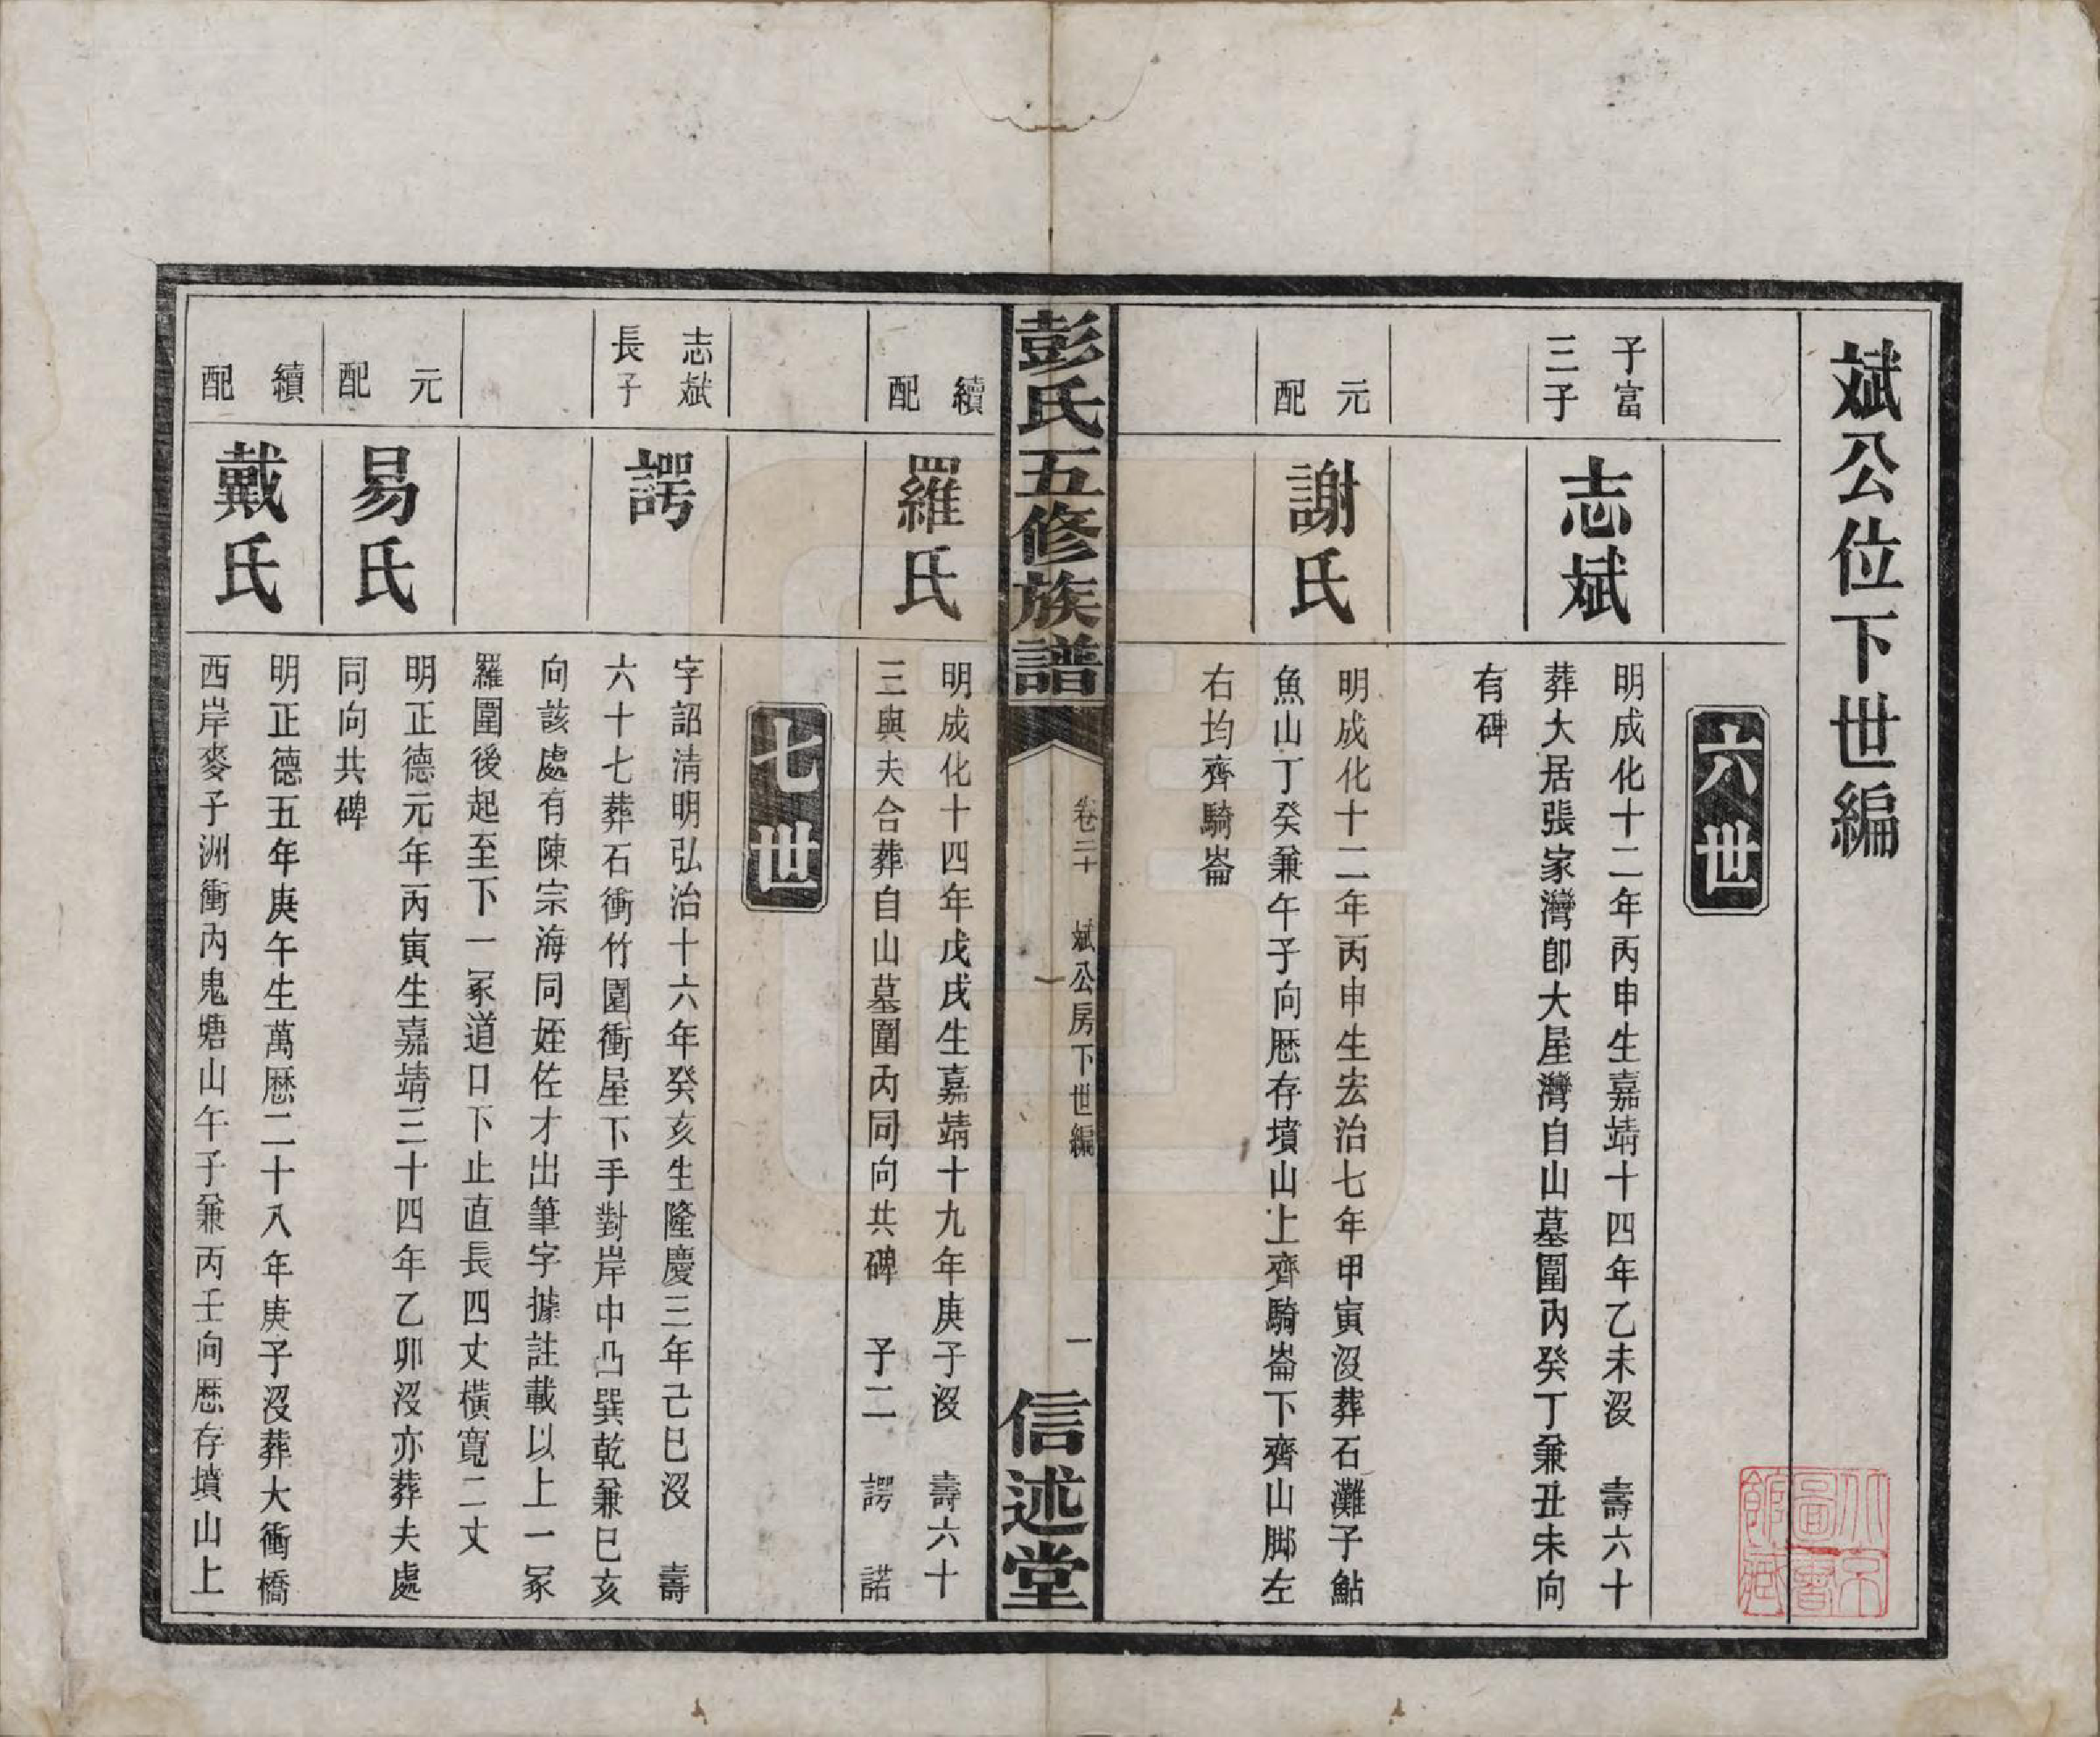 斌公位下世編
六世
子富
三子
志斌
明成化十二年丙申生嘉靖十四年乙未沒 壽六十
葬大居張家灣卽大屋灣自山墓圍內癸丁兼丑未向
有碑
元
配
謝氏
明成化十二年丙申生宏治七年甲寅沒葬石灘子鮎
魚山丁癸兼午子向歷存墳山上齊騎崙下齊山脚左
右均齊騎崙
彭氏五修族譜
卷二十 斌公房下世編
一
信述堂
續
配
羅氏
明成化十四年戊戌生嘉靖十九年庚子沒 壽六十
三與夫合葬自山墓圍內同向共碑 子二 諤 諾
七世
志斌
長子
諤
字詔清明弘治十六年癸亥生隆慶三年己巳沒 壽
六十七葬石衝竹園衝屋下手對岸中凸巽乾兼巳亥
向該處有陳宗海同姪佐才出筆字據註載以上一冢
羅圍後起至下一冢道口下止直長四丈橫寬二丈
元
配
易氏
明正德元年丙寅生嘉靖三十四年乙卯沒亦葬夫處
同向共碑
續
配
戴氏
明正德五年庚午生萬歷二十八年庚子沒葬大衝橋
西岸麥子洲衝內鬼塘山午子兼丙壬向歷存墳山上
北京
圖書
館藏